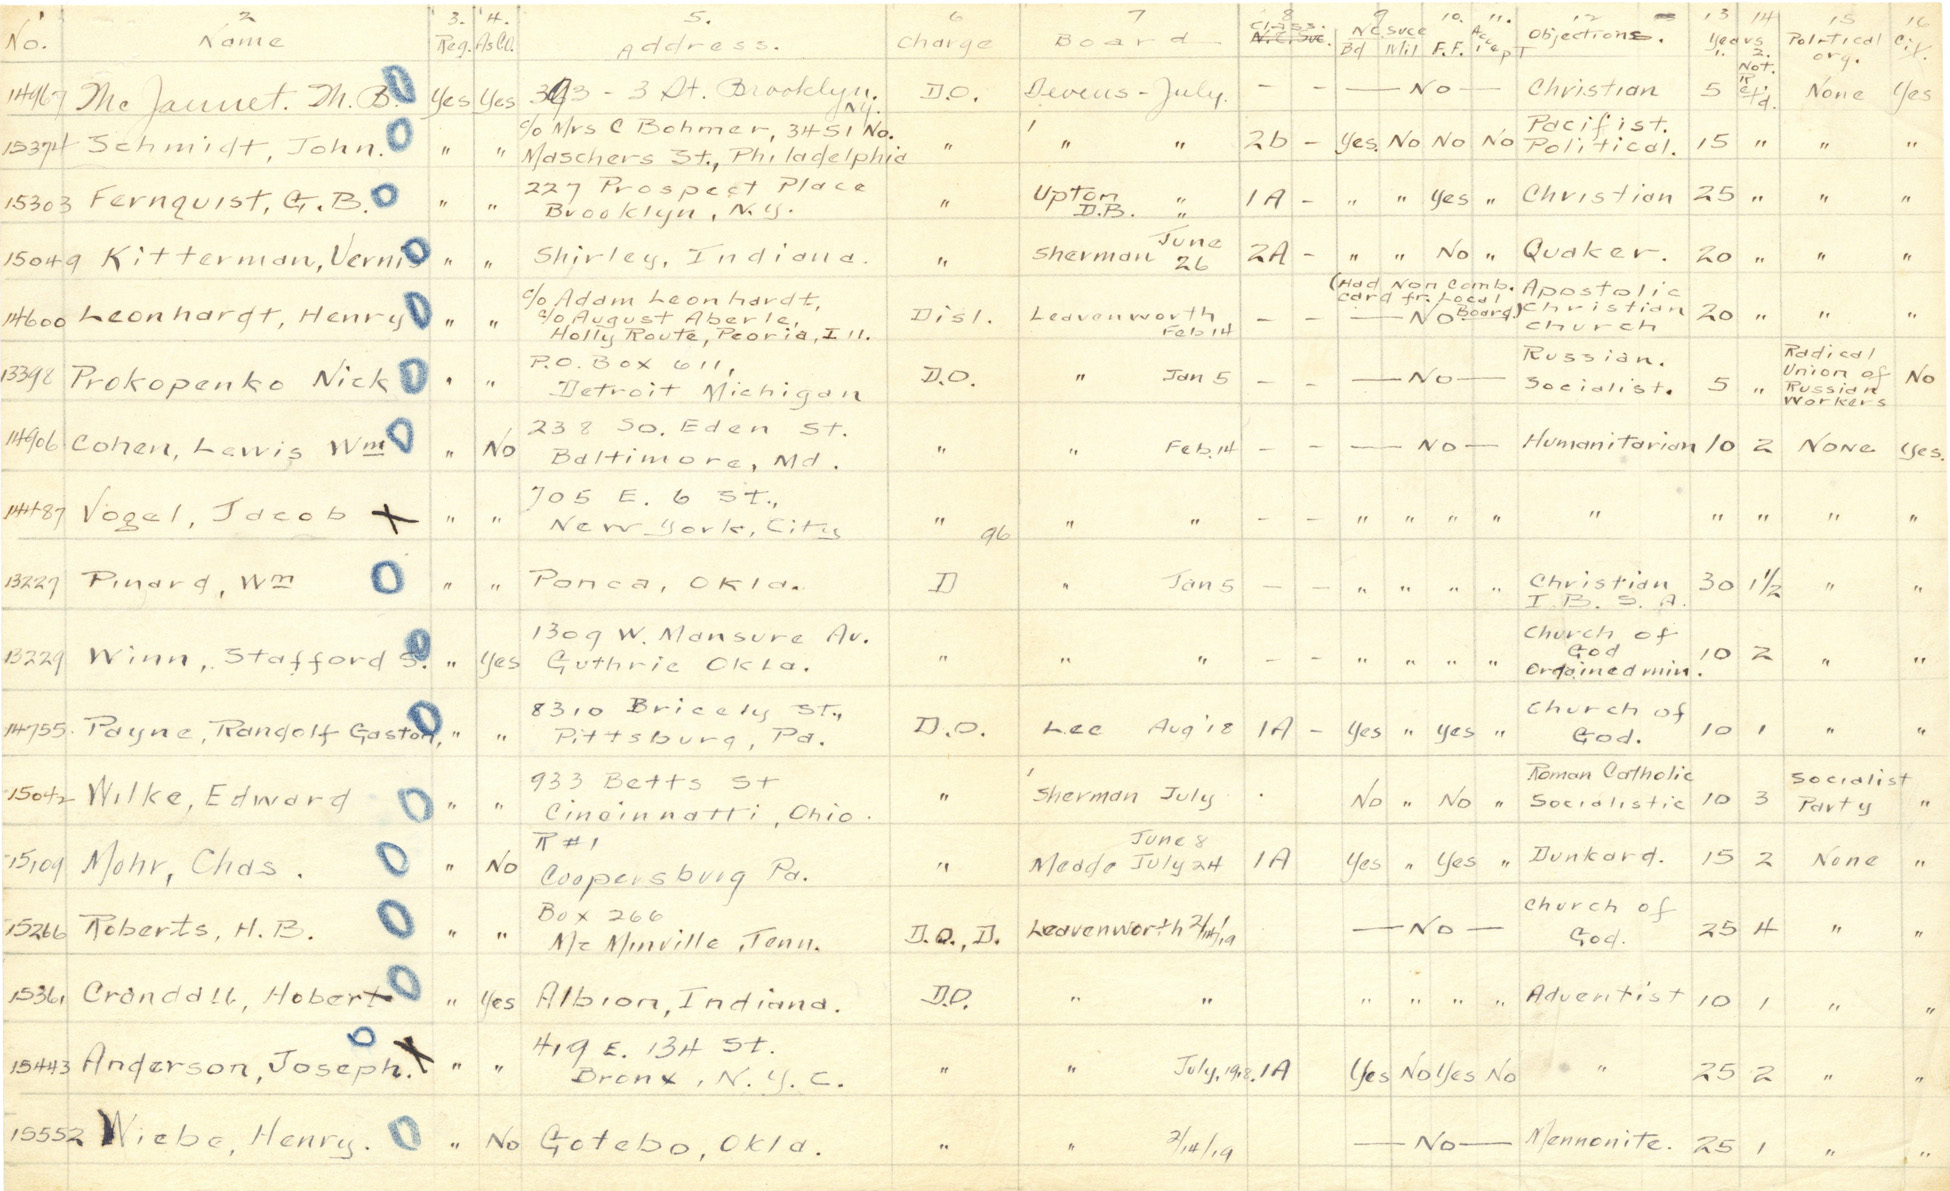 2 3. 4. 5. 6 7 8 9 10. 11. 12 13 14 15 16
No. Name Reg. As C.O. Address. Charge Board Class. N.C. Svc. N.C. Svce Bd Mil F.F. Accept Objections. Years 1. 2. Political org. Cit.
14967 Mc Jaunet. M. B. Yes Yes 393 - 3 St. Brooklyn. N.Y. D.O. Devens - July. - - — No — Christian 5 Not. R'c't'd. None Yes
15374 Schmidt, John. " " c/o Mrs C Bohmer, 3451 No. Maschers St., Philadelphia " " " 2b - Yes. No No No Pacifist. Political. 15 " " "
15303 Fernquist, G. B. " " 227 Prospect Place Brooklyn, N.Y. " Upton D.B. " " 1A - " " Yes " Christian 25 " " "
15049 Kitterman, Vernis " " Shirley, Indiana. " Sherman June 26 2A - " " No " Quaker. 20 " " "
14600 Leonhardt, Henry " " c/o Adam Leonhardt, c/o August Aberle, Holly Route, Peoria, Ill. Disl. Leavenworth Feb 14 - - (Had Non Comb. card fr. Local Board.) — No — Apostolic Christian Church 20 " " "
13398 Prokopenko Nick " " P.O. Box 611, Detroit Michigan D.O. " Jan 5 - - — No — Russian. Socialist. 5 " Radical Union of Russian Workers No
14906 Cohen, Lewis Wm " No 238 So. Eden St. Baltimore, Md. " " Feb. 14 - - — No — Humanitarian 10 2 None Yes.
14487 Vogel, Jacob X " " 705 E. 6 St., New York, City " 96 " " - - " " " " " " " " "
13227 Pinard, Wm " " Ponca, Okla. D " Jan 5 - - " " " " Christian I. B. S. A. 30 1 1/2 " "
13229 Winn, Stafford S. " Yes 1309 W. Mansure Av. Guthrie Okla. " " " - - " " " " Church of God Ordained min. 10 2 " "
14755. Payne, Randolf Gaston, " " 8310 Bricely St., Pittsburg, Pa. D.O. Lee Aug '18 1A - Yes " Yes " Church of God. 10 1 " "
15042 Wilke, Edward " " 933 Betts St Cincinnatti, Ohio. " Sherman July No " No " Roman Catholic Socialistic 10 3 Socialist Party "
15109 Mohr, Chas. " No R #1 Coopersburg Pa. " Meade June 8 July 24 1A Yes " Yes " Dunkard. 15 2 None "
15266 Roberts, H. B. " " Box 266 Mc Minville, Tenn. D.O., D. Leavenworth 2/14/19 — No — Church of God. 25 4 " "
15361 Crandall, Hobert " Yes Albion, Indiana. D.O. " " " " " " Adventist 10 1 " "
15443 Anderson, Joseph. X " " 419 E. 134 St. Bronx, N.Y.C. " " July, 1918. 1A Yes No Yes No " 25 2 " "
15552 Wiebe, Henry. " No Gotebo, Okla. " " 2/14/19 — No — Mennonite. 25 1 " "